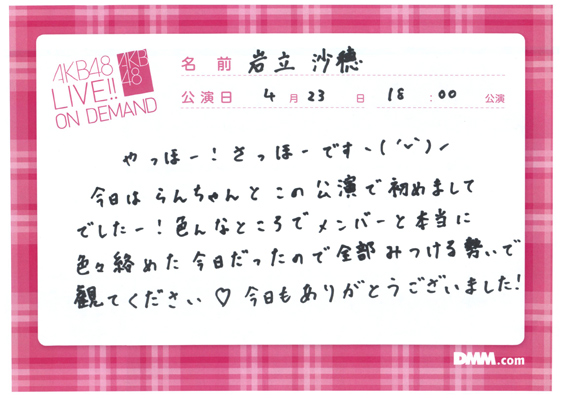 AKB48
LIVE!!
ON DEMAND
AKB
48
名前 岩立 沙穂
公演日 4月23日 18:00 公演
やっほー!さっほーですヽ(´ᵕ`)ノ
今日はらんちゃんとこの公演で初めまして
でしたー!色んなところでメンバーと本当に
色々絡めた今日だったので全部みつける勢いで
観てください♡今日もありがとうございました!
DMM.com